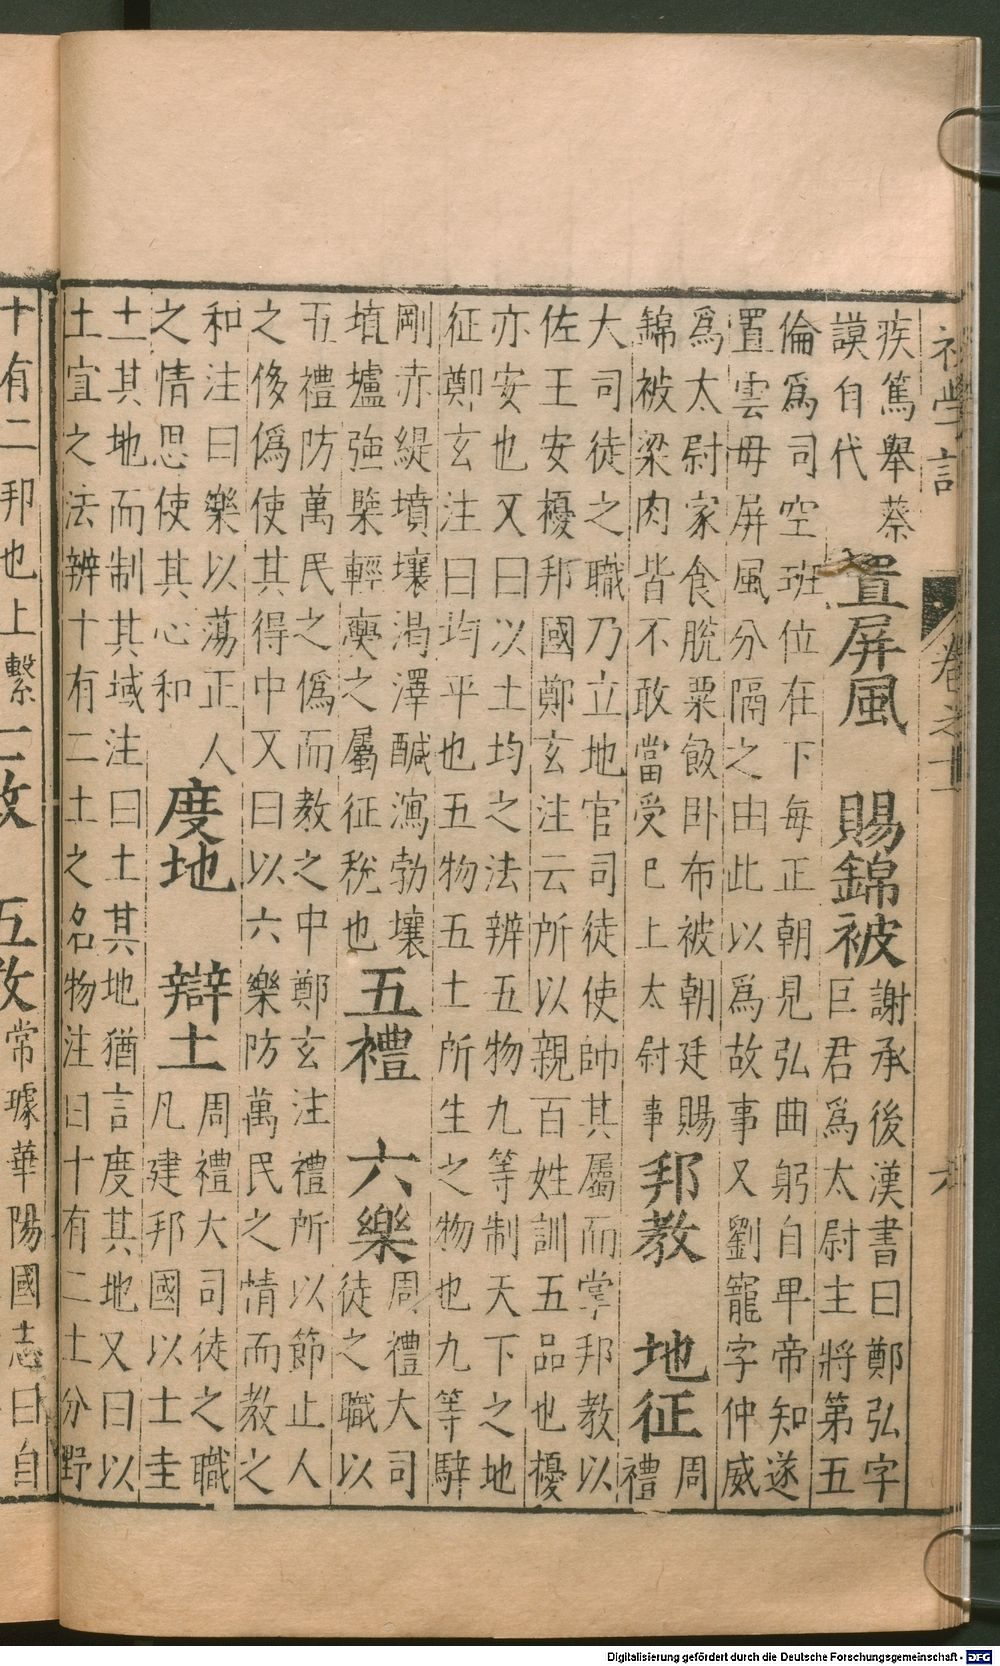 初學記 卷之十一 六
疾篤舉蔡
謨自代
置屏風 賜錦被
謝承後漢書曰鄭弘字
巨君爲太尉主將第五
倫爲司空班位在下每正朝見弘曲躬自卑帝知遂
置雲母屏風分隔之由此以爲故事又劉寵字仲威
爲太尉家食脫粟飯臥布被朝廷賜
錦被梁肉皆不敢當受已上太尉事
邦教 地征
周
禮
大司徒之職乃立地官司徒使帥其屬而掌邦教以
佐王安擾邦國鄭玄注云所以親百姓訓五品也擾
亦安也又曰以土均之法辨五物九等制天下之地
征鄭玄注曰均平也五物五土所生之物也九等騂
剛赤緹墳壤渴澤鹹瀉勃壤
埴壚強㯺輕㷼之屬征稅也
五禮 六樂
周禮大司
徒之職以
五禮防萬民之僞而教之中鄭玄注禮所以節止人
之侈僞使其得中又曰以六樂防萬民之情而教之
和注曰樂以蕩正人
之情思使其心和
度地 辯土
周禮大司徒之職
凡建邦國以土圭
土其地而制其域注曰土其地猶言度其地又曰以
土宜之法辨十有二土之名物注曰十有二土分野
十有二邦也上繫 二教 五教 常璩華陽國志曰自
Digitalisierung gefördert durch die Deutsche Forschungsgemeinschaft - DFG